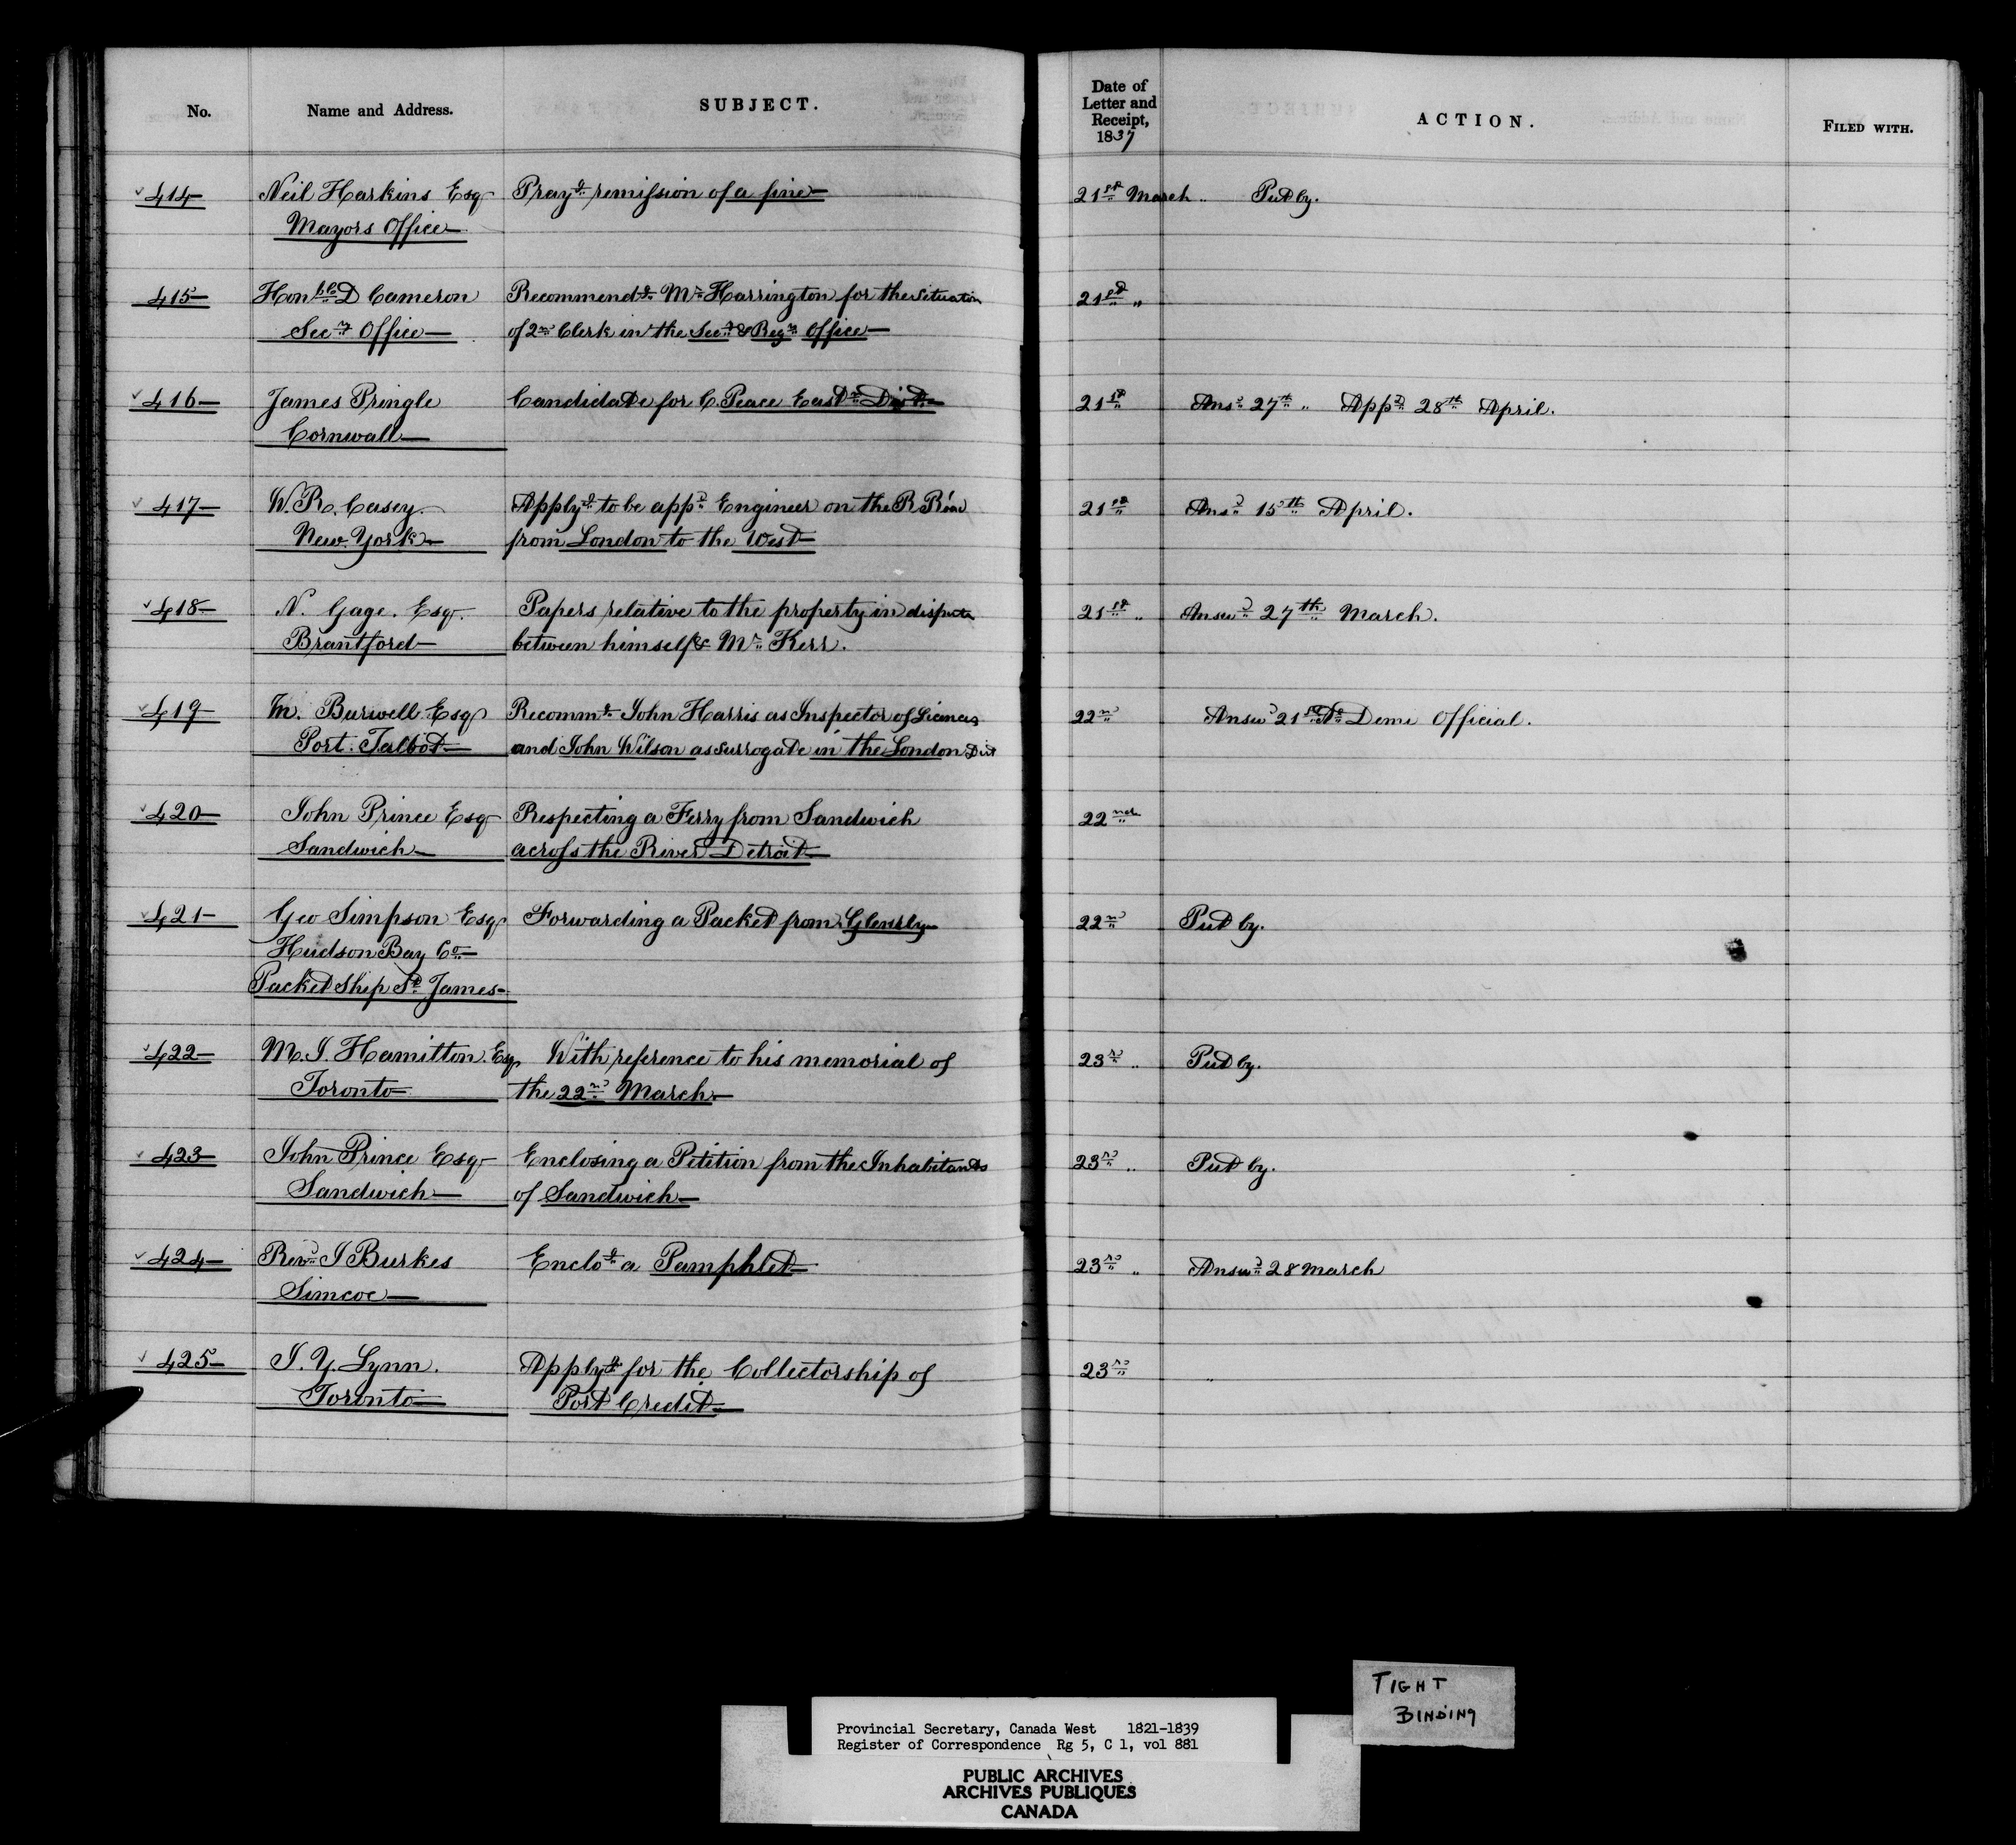 No. Name and Address. SUBJECT. Date of Letter and Receipt, 1837 ACTION. FILED WITH.
414 Neil Harkins Esq Prayg remission of a fine 21st March " Put by.
Mayors Office
415 Honble D Cameron Recommendg Mr Harrington for the situation 21st "
Secy Office of 2nd Clerk in the Secy & Regrs Office
416 James Pringle Candidate for C. Peace Eastn Dist. 21st Ansd 27th " Appd 28th April.
Cornwall
417 W. R. Casey. Applyg to be appd Engineer on the R Road 21st Ansd 15th April.
New York from London to the West
418 N. Gage. Esq. Papers relative to the property in dispute 21st " Answd 27th March.
Brantford between himself & Mr Kerr.
419 M. Burwell Esq Recommg John Harris as Inspector of Licences 22nd Answd 21st Demi Official.
Port Talbot and John Wilson as surrogate in the London Dist
420 John Prince Esq Respecting a Ferry from Sandwich 22nd
Sandwich across the River Detroit
421 Geo Simpson Esq Forwarding a Packet from Glenelg 22nd Put by.
Hudson Bay Co
Packet Ship St James
422 M. I. Hamilton. Esq With reference to his memorial of 23rd " Put by.
Toronto the 22nd March
423 John Prince Esq Enclosing a Petition from the Inhabitants 23rd " Put by.
Sandwich of Sandwich
424 Revd I Burkes Enclog a Pamphlet 23rd " Answd 28 March
Simcoe
425 I. Y. Lynn. Applyg for the Collectorship of 23rd "
Toronto Port Credit
TIGHT
BINDING
Provincial Secretary, Canada West 1821-1839
Register of Correspondence Rg 5, C 1, vol 881
PUBLIC ARCHIVES
ARCHIVES PUBLIQUES
CANADA